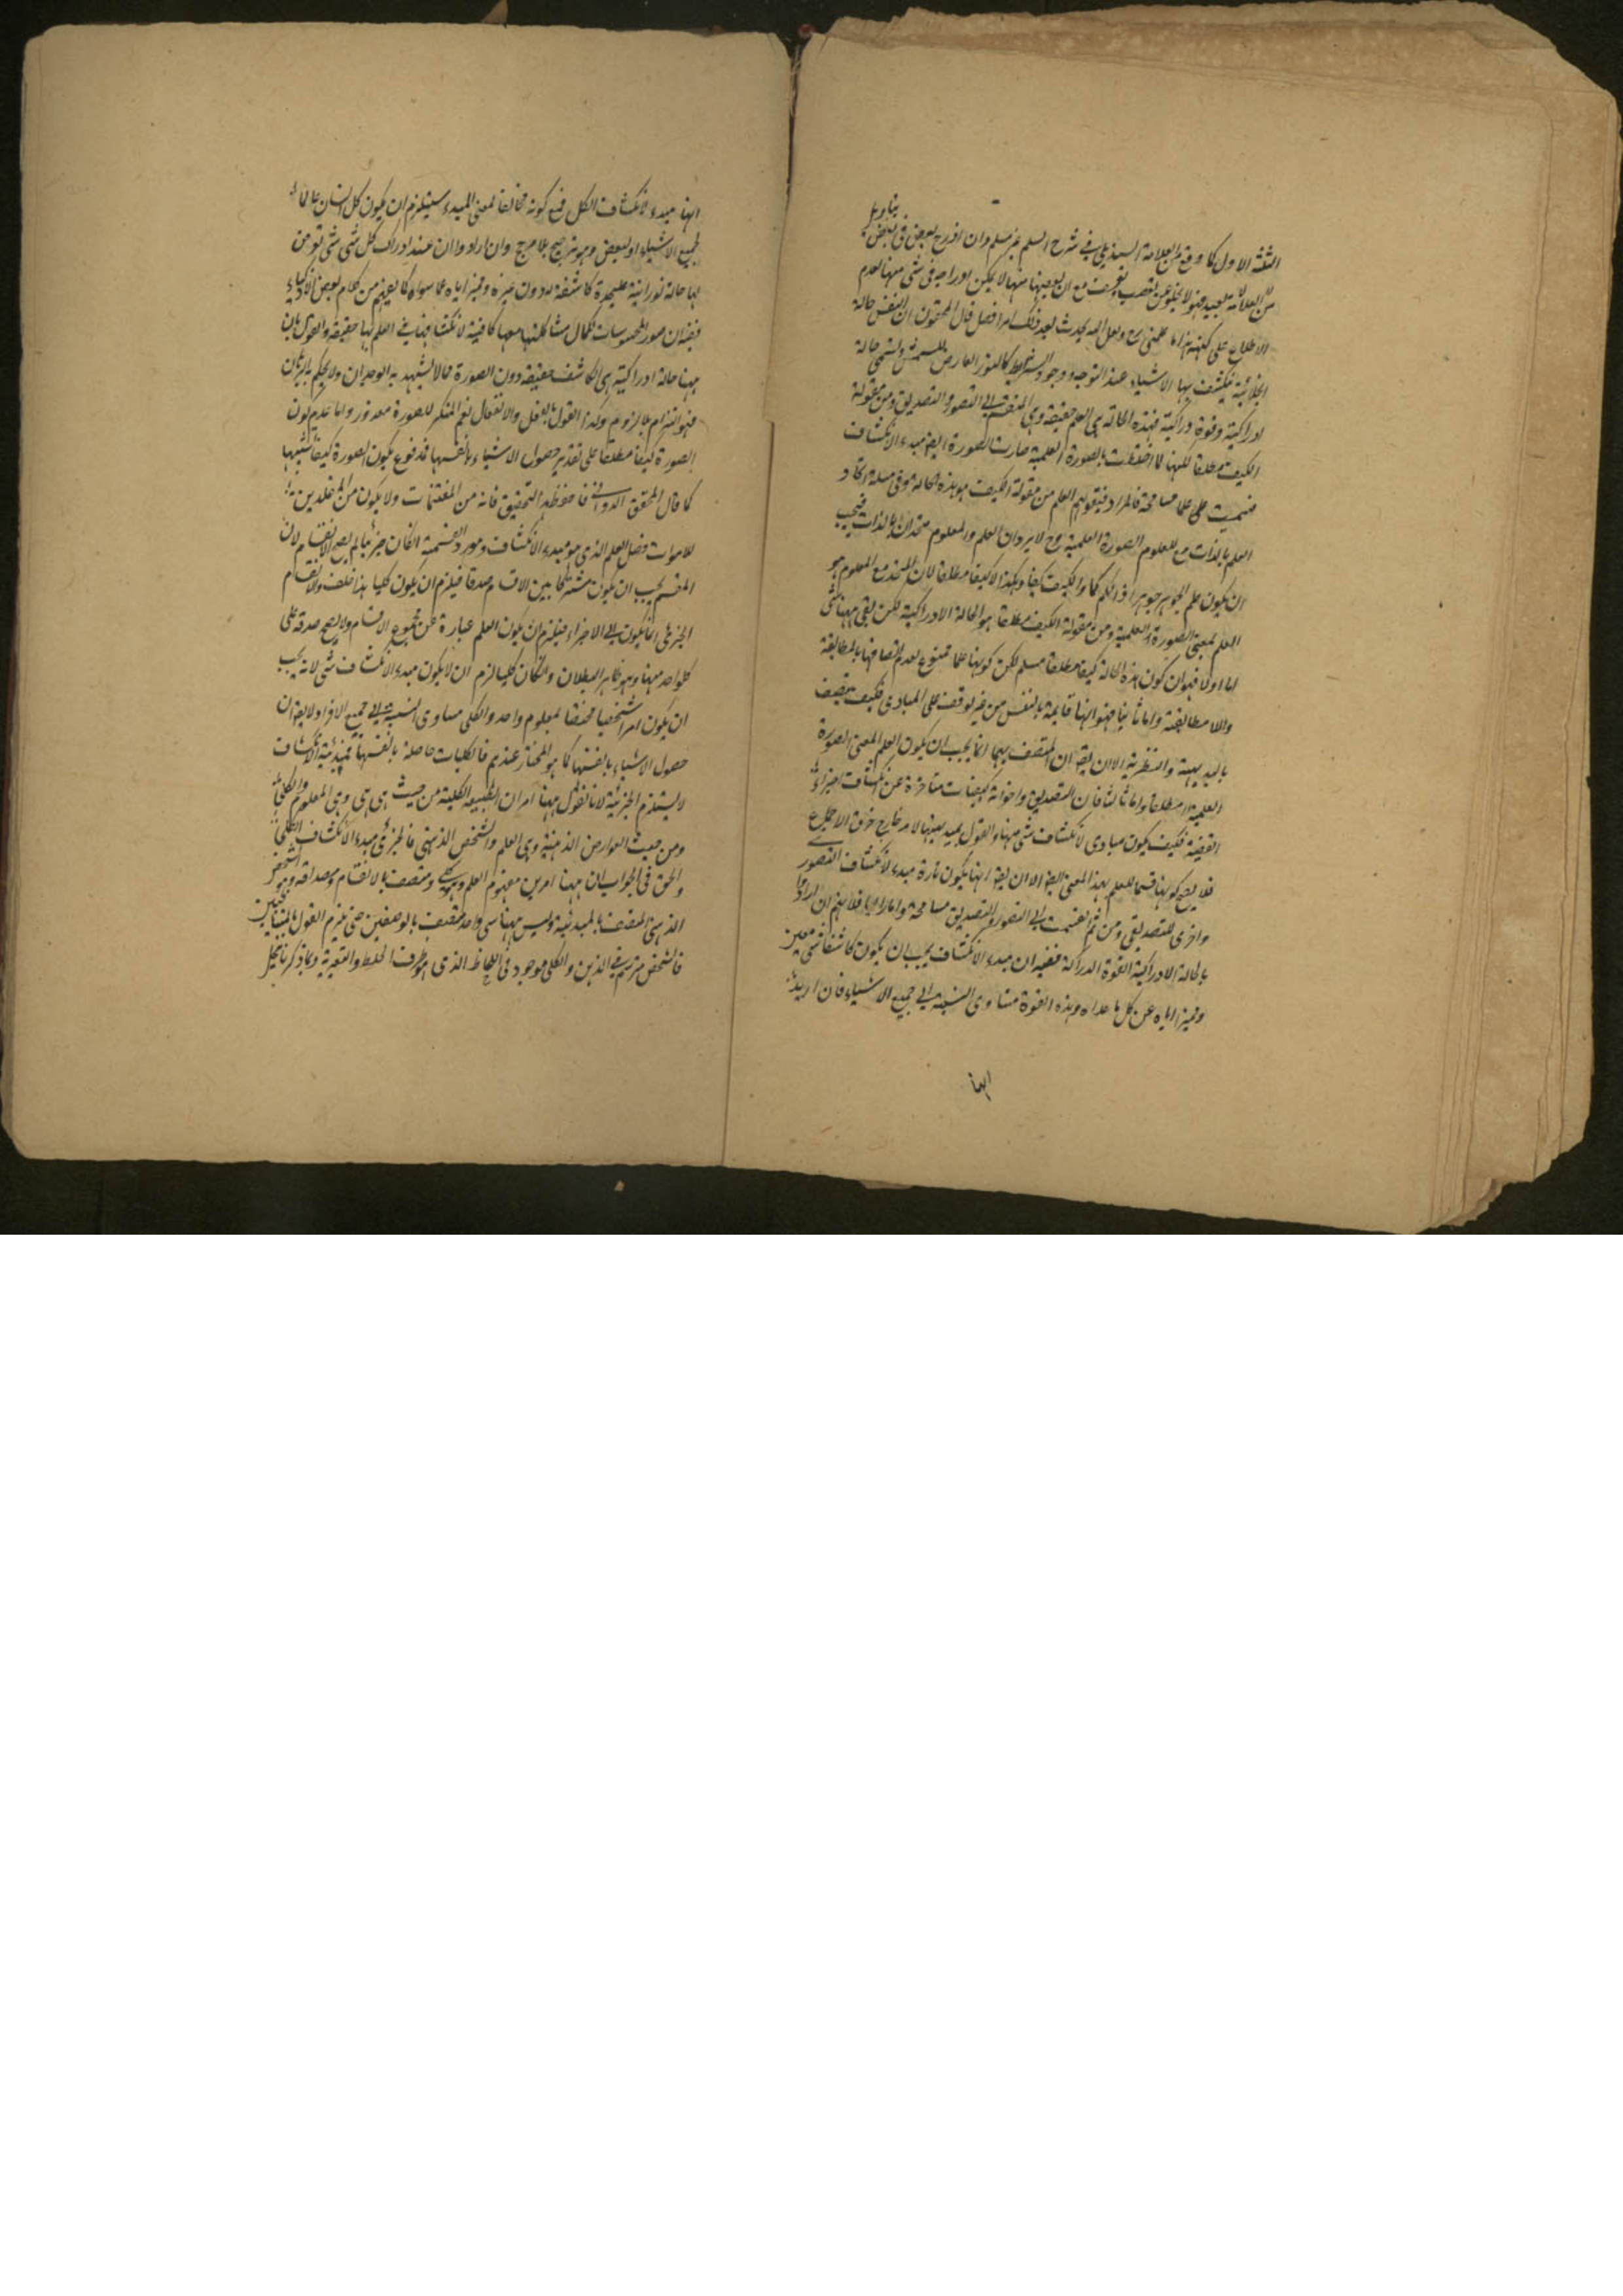 بتاويل
الثلث الاول كما وقع من العلامة السنديلي في شرح السلم غير مسلم وان اندرج بعض في البعض
من العلامة بعيد فهو لا يخلو عن تعصب وتعسف مع ان بعضها منها لا يمكن ادراجه في شئ منها لعدم
الاطلاع على كنهه هذا ما علمني ربي ولعل الله يحدث بعد ذلك امرا فصل قال المحققون ان للنفس حالة
انجلائية ينكشف بها الاشياء عند التوجه ووجود الشرائط كالنور العارض للشمس وتسمى حالة
ادراكية وقوة دراكية فهذه الحالة هي العلم حقيقة وهي المنقسم الى التصور والتصديق ومن مقولة
الكيف مطلقا لكنها لما اختلطت بالصورة العلمية صارت الصورة ايضا مبدء الانكشاف
فسميت علما مسامحة فالمراد فيقولهم العلم من مقولة الكيف هو هذه الحالة وفي مسئلة اتحاد
العلم بالذات مع المعلوم الصورة العلمية وح لا يرد ان العلم والمعلوم متحدان بالذات فيجب
ان يكون علم الجوهر جوهرا والكم كما والكيف كيفا وهكذا لا كيفا مطلقا لان المتحد مع المعلوم هو
العلم بمعنى الصورة العلمية ومن مقولة الكيف مطلقا هو الحالة الادراكية لكن بقي ههنا شئ
اما اولا فهو ان كون هذه الحالة كيفا مطلقا مسلم لكن كونها علما ممنوع لعدم اتصافها بالمطابقة
واللا مطابقة واما ثانيا فهو انها قائمة بالنفس من غير توقف على المبادي فكيف يتصف
بالبديهية والنظرية الا ان يقال ان المتصف بهما انما يجب ان يكون العلم بمعنى الصورة
العلمية لا مطلقا واما ثالثا فان التصديق واخواته كيفيات متاخرة عن انكشاف اجزاء
القضية فكيف يكون مبادي لانكشاف شئ منها والقول بمبدئيتها لامر خارج خرق الاجماع
فلا يصح كونها قسما للعلم بهذا المعنى ايضا الا ان يقال انها يكون تارة مبدء لانكشاف التصور
واخرى للتصديقي ومن ثم قسمت الى التصور والتصديق مسامحة واما رابعا فلانهم ان ارادوا
بالحالة الادراكية القوة الدراكة ففيه ان مبدء الانكشاف يجب ان يكون كاشفا لشئ معين
ومميزا اياه عن كل ما عداه وهذه القوة متساوي النسبة الى جميع الاشياء فان اريد
انها
انها مبدء لانكشاف الكل فمع كونه مخالفا لمعنى المبدء يستلزم ان يكون كل انسان عالما
لجميع الاشياء او لبعض وهو ترجيح بلا مرجح وان ارادوا ان عند ادراك كل شئ شئ تعرض
لها حالة نورانية عليحدة كاشفة له دون غيره ومميز اياه عما سواه كما يفهم من كلام بعض الاذكياء
ففيه ان صور المحسوسات لكمال مشاكلتها معها كافية لانكشافها في العلم بها حقيقة والقول بان
ههنا حالة ادراكية هي الكاشف حقيقة دون الصورة مما لا يشهد به الوجدان ولا يحكم به البرهان
فهو التزام ما لا يلزم وكذا القول بالفعل والانفعال نعم المنكر للصورة معذور واما عدم كون
الصورة كيفا مطلقا على تقدير حصول الاشياء بانفسها فمدفوع بكون الصورة كيفا تشبيها
كما قال المحقق الدواني فاحفظ هذا التحقيق فانه من المغتنمات ولا يكون من المقلدين
للاموات فصل العلم الذي هو مبدء الانكشاف ومورد القسمة ان كان جزئيا لم يصح الانقسام لان
المقسم يجب ان يكون مشتركا بين الاقسام صدقا فيلزم ان يكون كليا هذا خلف والانقسام
الجزئي انما يكون الى الاجزاء فيلزم ان يكون العلم عبارة عن مجموع الاقسام ولا يصح صدقه على
كل واحد منها وهو ظاهر البطلان وان كان كليا لزم ان لا يكون مبدء لانكشاف شئ لانه يجب
ان يكون امرا شخصيا مختصا بمعلوم واحد والكلي مساوي النسبة الى جميع الافراد لا يقال ان
حصول الاشياء بانفسها كما هو المختار عندهم فالكليات حاصلة بانفسها فمبدئية الانكشاف
لا يستلزم الجزئية لانا نقول ههنا امران الطبيعة الكلية من حيث هي هي وهي المعلوم والكلي
ومن حيث العوارض الذهنية وهي العلم والشخص الذهني فالجزئي مبدء الانكشاف الكلي
والحق في الجواب ان ههنا امرين مفهوم العلم وهو كلي ومتصف بالانقسام ومصداقه وهو الشخص
الذهني المتصف بالمبدئية وليس ههنا شئ واحد متصف بالوصفين حتى يلزم القول بالمتنافيين
فالشخص مرتسم في الذهن والكلي موجود في اللحاظ الذي هو ظرف الخلط والتعرية وبما ذكرنا ينحل